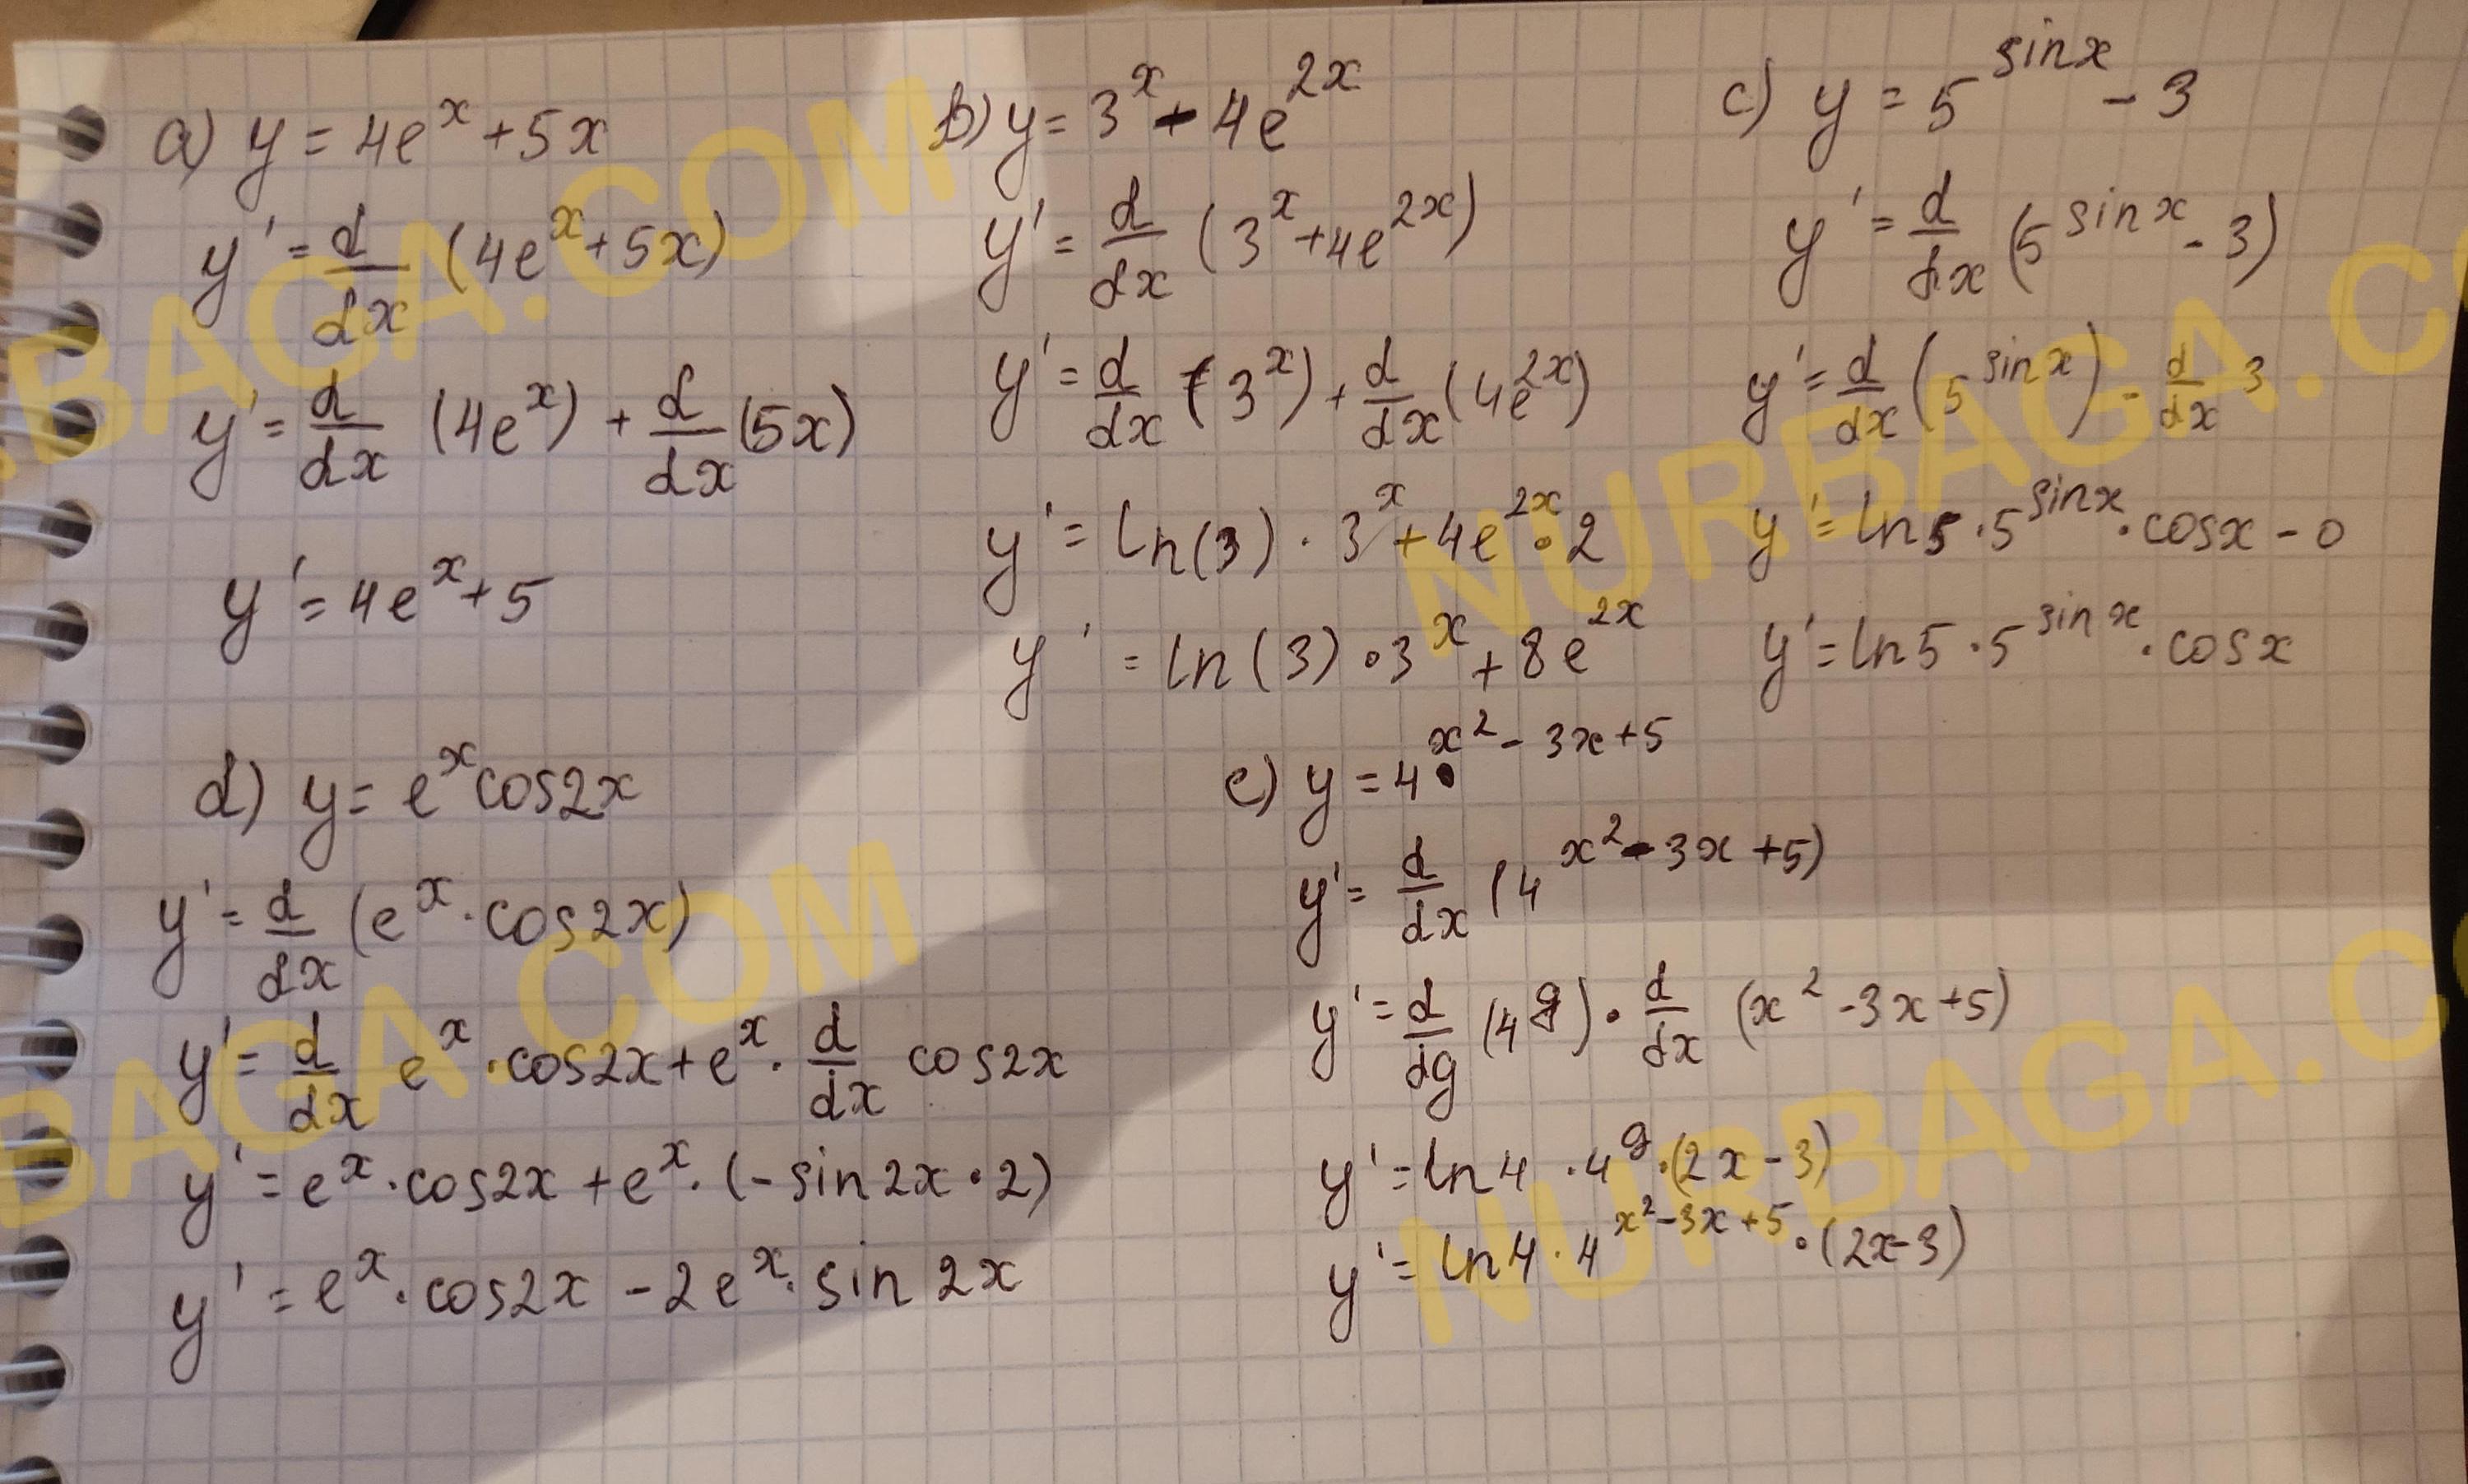 a) y = 4e^x + 5x
y' = d/dx (4e^x + 5x)
y' = d/dx (4e^x) + d/dx (5x)
y' = 4e^x + 5
b) y = 3^x + 4e^2x
y' = d/dx (3^x + 4e^2x)
y' = d/dx (3^x) + d/dx (4e^2x)
y' = ln(3) · 3^x + 4e^2x · 2
y' = ln(3) · 3^x + 8e^2x
c) y = 5^sinx - 3
y' = d/dx (5^sinx - 3)
y' = d/dx (5^sinx) - d/dx 3
y' = ln5 · 5^sinx · cosx - 0
y' = ln5 · 5^sinx · cosx
d) y = e^x cos2x
y' = d/dx (e^x · cos2x)
y' = d/dx e^x · cos2x + e^x · d/dx cos2x
y' = e^x · cos2x + e^x · (- sin2x · 2)
y' = e^x · cos2x - 2e^x · sin 2x
e) y = 4^x^2 - 3x + 5
y' = d/dx (4^x^2 - 3x + 5)
y' = d/dg (4^g) · d/dx (x^2 - 3x + 5)
y' = ln4 · 4^g · (2x - 3)
y' = ln4 · 4^x^2 - 3x + 5 · (2x - 3)
NURBAGA.COM